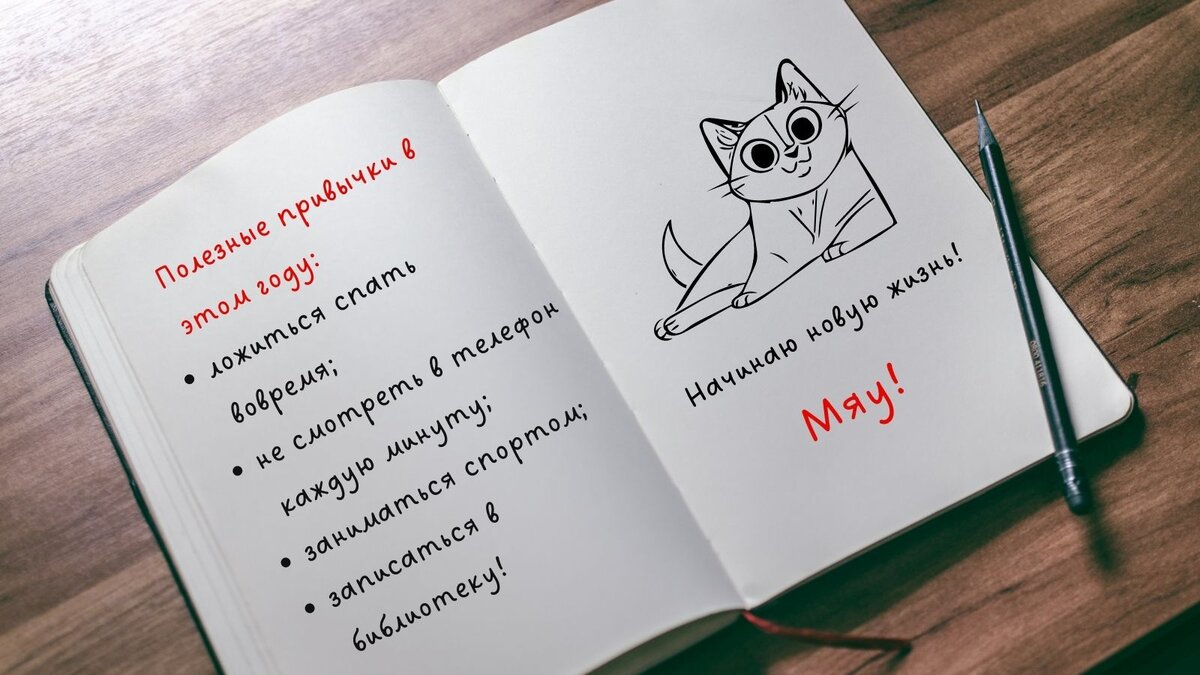 Полезные привычки в
этом году:
• ложиться спать
вовремя;
• не смотреть в телефон
каждую минуту;
• заниматься спортом;
• записаться в
библиотеку!
Начинаю новую жизнь!
Мяу!